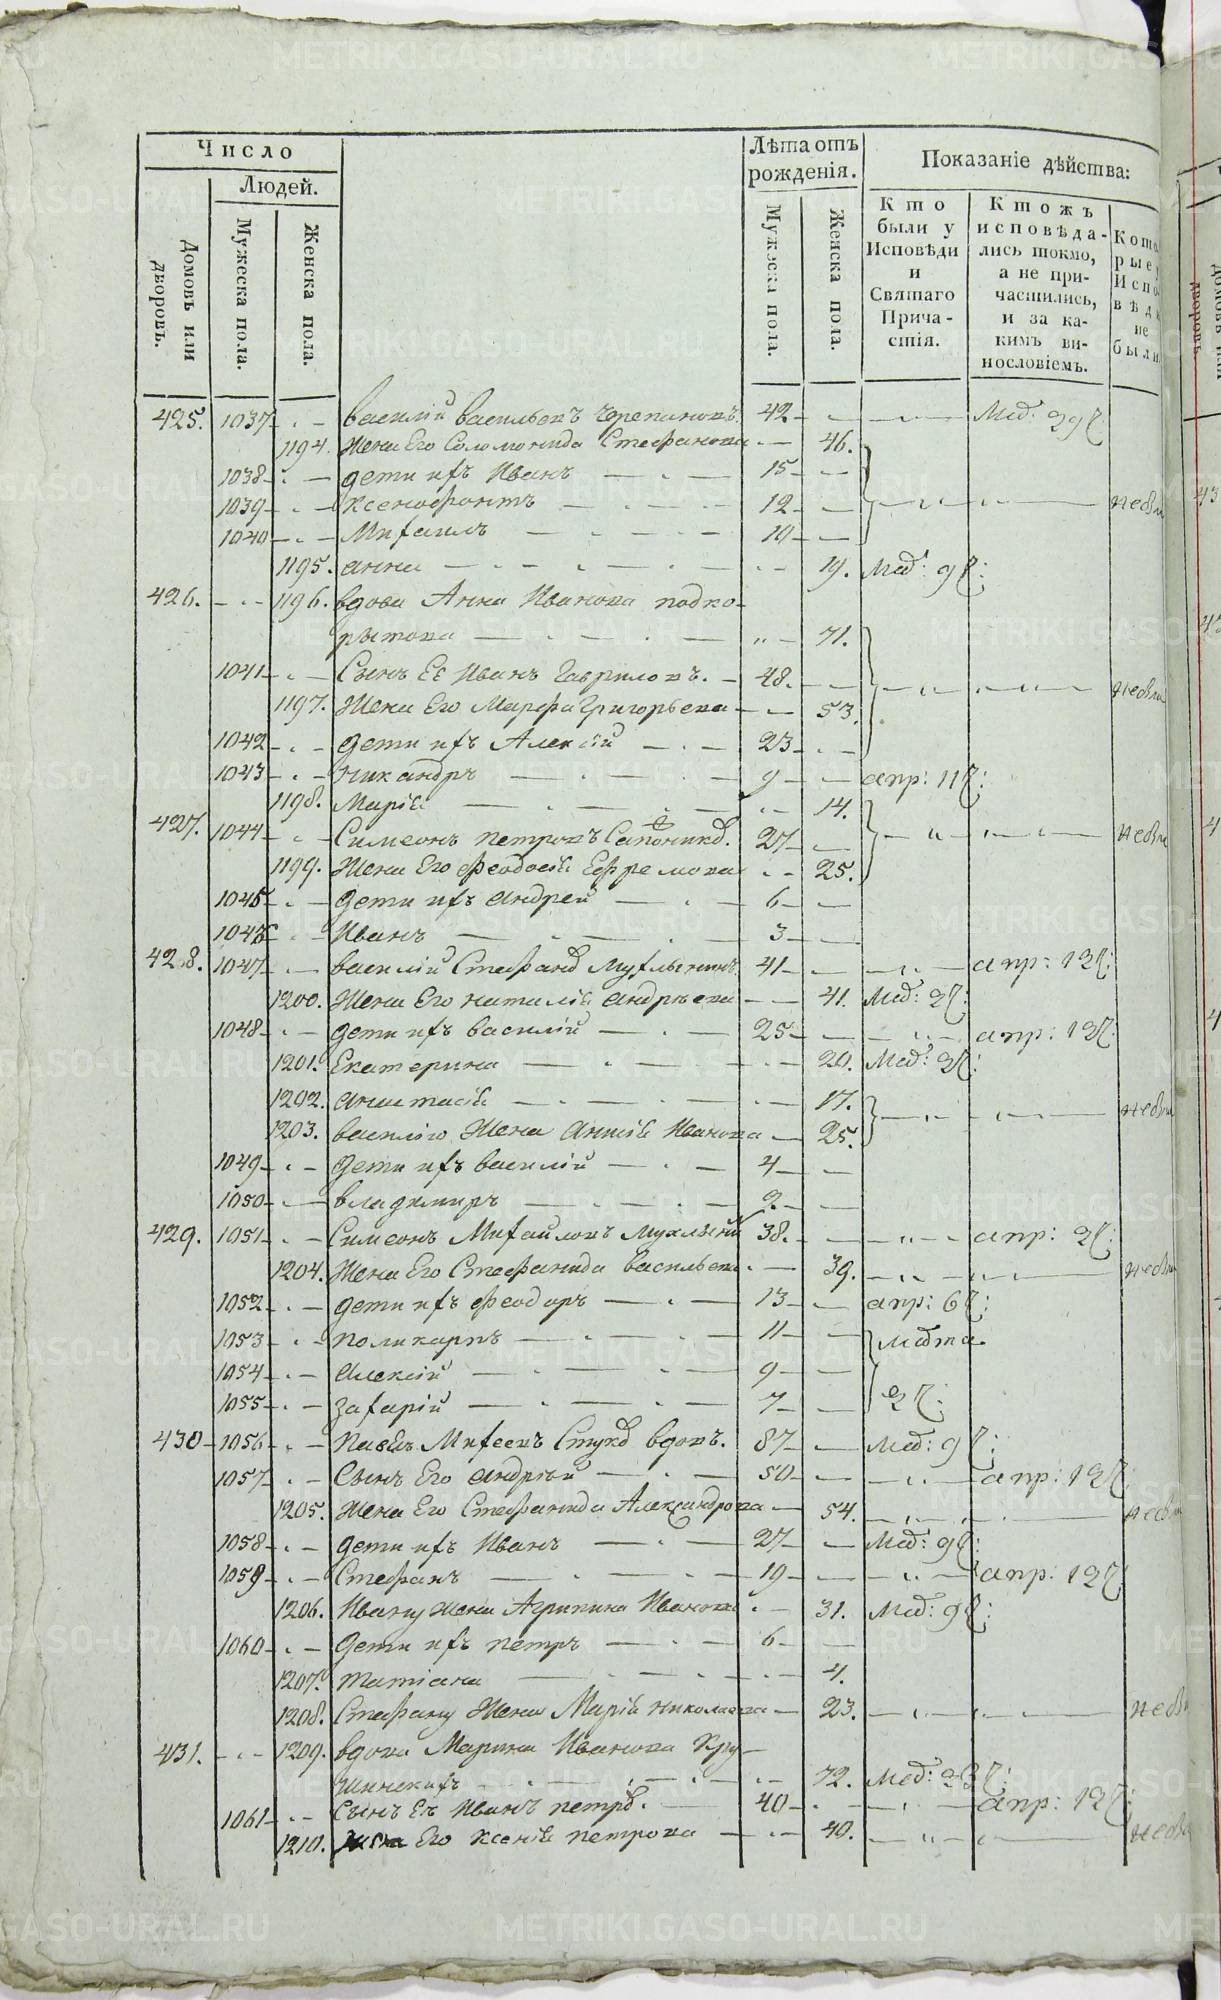 Число
Людей.
Домовъ или дворовъ.
Мужеска пола.
Женска пола.
Лѣта отъ рожденія.
Мужеска пола.
Женска пола.
Показаніе дѣйства:
Кто были у Исповѣди и Святаго Причастія.
Ктожъ исповѣдались токмо, а не причастились, и за какимъ винословіемъ.
Которые у Исповѣди не были
425. 1037 василій васильевъ черепановъ 42
1194. Жена Его Соломонида Стефанова 46.
1038 дети ихъ Иванъ 15
1039 Ксенофонтъ 12
1040 Михаилъ 10
1195. анна 19.
426. 1196. вдова Анна Иванова подко-
рытова 71.
1041 Сынъ Ее Иванъ Гавриловъ. 48.
1197. Жена Его Марфа Григорьева 53.
1042 дети ихъ Алексій 23
1043 Никандръ 9 апр: 11
1198. Марія 14.
427. 1044 Симеонъ петровъ 27
1199. Жена Его феодосія Ефремова 25.
1045 дети ихъ андрей 6
1046 Иванъ 3
428. 1047 василій Стефанов Мухлынинъ 41 апр: 12
1200. Жена Его наталія андрѣева 41.
1048 дети ихъ василій 25 апр: 12
1201. Екатерина 20.
1202. анастасія 17.
1203. василію Жена Иванова 25.
1049 дети ихъ василій 4
1050 владимиръ 2
429. 1051 Симеонъ Михайловъ Мухлынин 38. апр: 2
1204. Жена Его Стефанида васильева 39.
1052 дети ихъ феодоръ 13 апр: 6
1053 поликарпъ 11 марта
1054 алексій 9
1055 захарій 7 2
430 1056 павелъ Михеевъ Стуков вдовъ. 87
1057 Сынъ Его андрѣй 50 апр: 12
1205. Жена Его Стефанида Александрова 54.
1058 дети ихъ Иванъ 27
1059 Стефанъ 19 апр: 12
1206. Ивану жена Агрипина Иванова 31.
1060 дети ихъ петръ 6
1207. татіана 4.
1208. Стефану Жена Марія николаева 23.
431. 1209. вдова Марина Иванова
72.
1061 Сынъ Ея Иванъ петров. 40 апр: 12
1210. жена Его Ксенія петрова 40.
METRIKI.GASO-URAL.RU